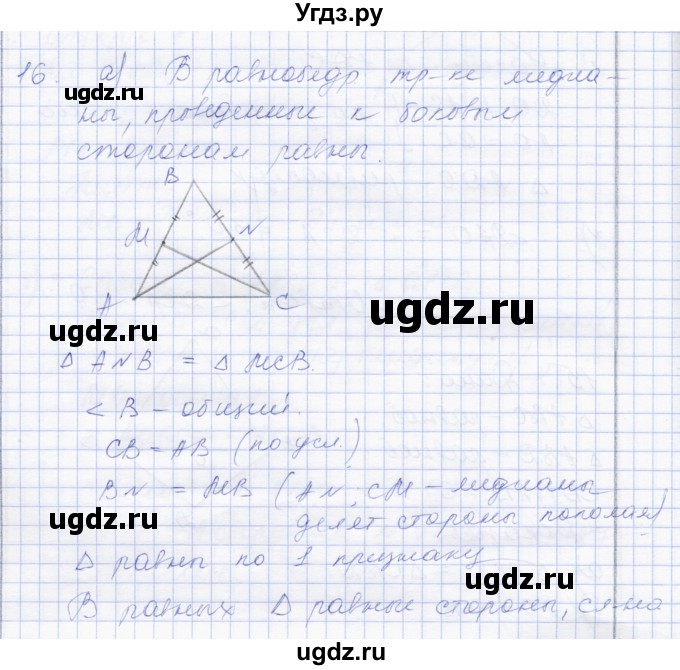 Угдз.ру
16. а) В равнобедр тр-ке медиа-
ны, проведенные к боковым
сторонам равны.
B
M N
A C
Δ ANB = Δ MCB.
< B - общий.
CB = AB (по усл.)
BN = MB (AN, CM - медианы
делят стороны пополам)
Δ равны по 1 признаку
В равных Δ равные стороны,
ugdz.ru
ugdz.ru
ugdz.ru
ugdz.ru
ugdz.ru
ugdz.ru
ugdz.ru
ugdz.ru